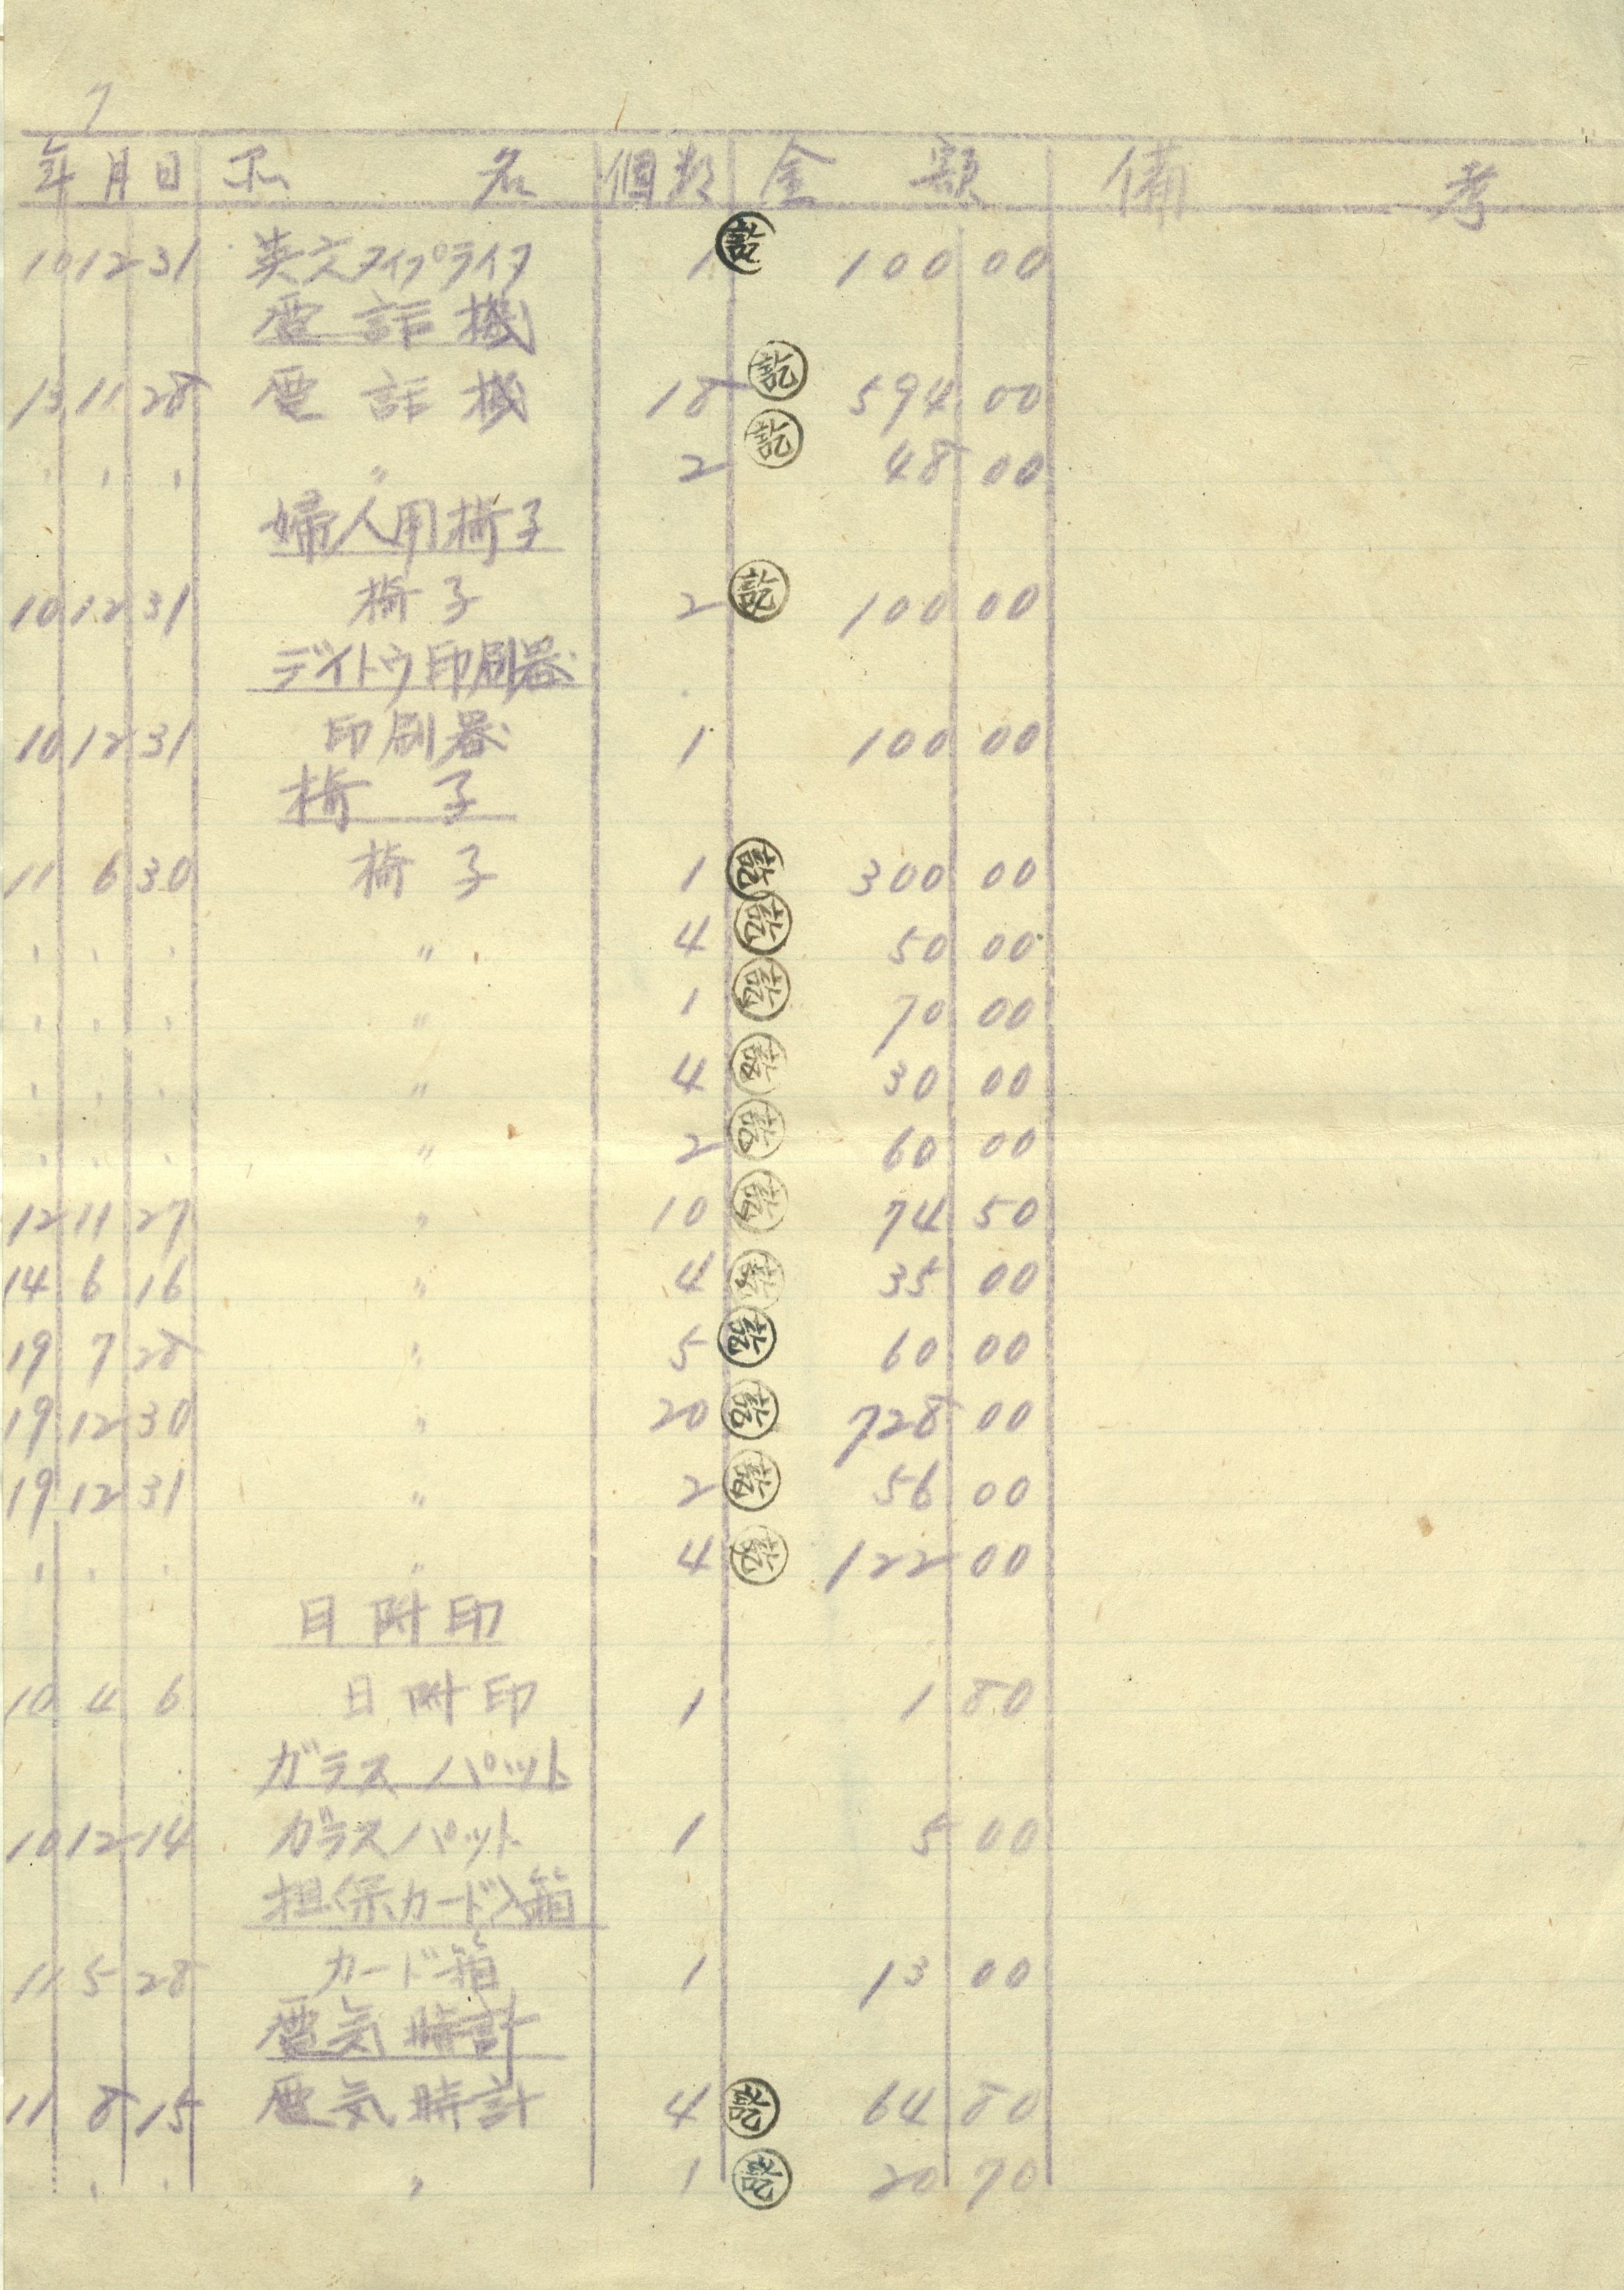 7
年 月 日 品 名 個数 金 額 備 考
10 12 31 英文タイプライタ 1 訖 100 00
電話機
13 11 28 電話機 18 訖 594 00
〃 2 訖 48 00
婦人用椅子
10 12 31 椅子 2 訖 100 00
デイトウ印刷器
10 12 31 印刷器 1 100 00
椅子
11 6 30 椅子 1 訖 300 00
〃 4 訖 50 00
〃 1 訖 70 00
〃 4 訖 30 00
〃 2 訖 60 00
12 11 27 〃 10 訖 74 50
14 6 16 〃 4 訖 35 00
19 7 28 〃 5 訖 60 00
19 12 30 〃 20 訖 728 00
19 12 31 〃 2 訖 56 00
〃 4 訖 122 00
日附印
10 4 6 日附印 1 1 80
ガラスパット
10 12 14 ガラスパット 1 5 00
担保カード入箱
11 5 28 カード箱 1 13 00
電気時計
11 8 15 電気時計 4 訖 64 80
〃 1 訖 20 70